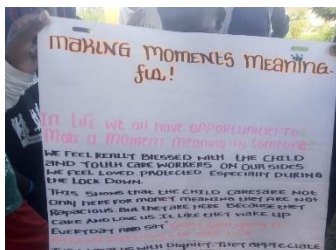 MAKING MOMENTS MEANING-
FUL!
In life we all have OPPORTUNITIES TO
Make a Moment Meaning to Someone.
WE FEEL REALLY BLESSED WITH THE CHILD
AND YOUTH CARE WORKERS ON OUR SIDES
WE FEEL LOVED PROTECTED ESPECIALLY DURING
THE LOCK DOWN.
THIS SHOWS THAT THE CHILD CARES ARE NOT
Only HERE FOR MONEY MEANING THEY ARE NOT
RAPACIOUS BUT THEY ARE HERE BECAUSE THEY
CARE AND LOVE US. IT LIKE THEY WAKE UP
EVERYDAY AND SAY
US WITH DIGNITY. THEY APPRECIATE